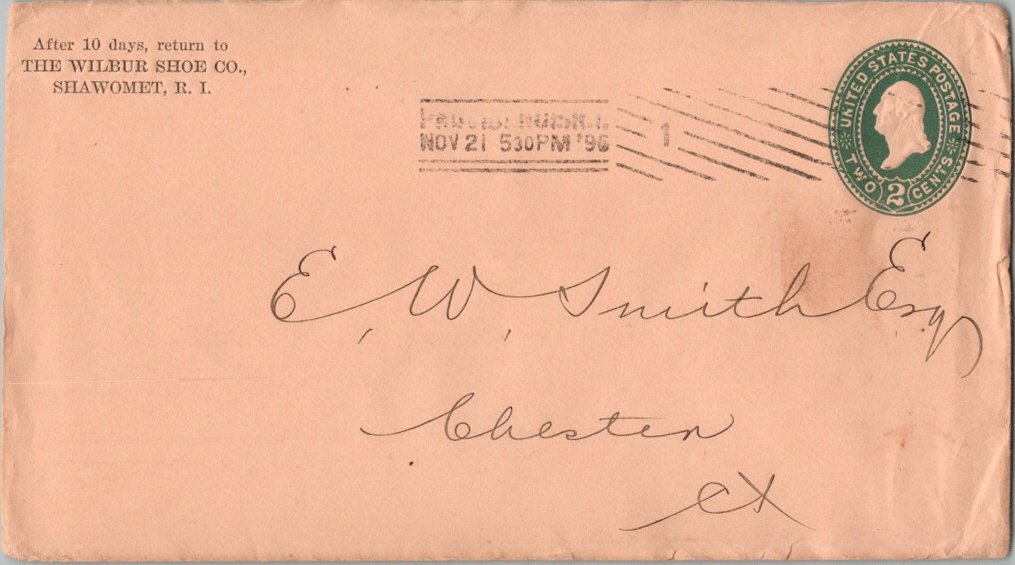 After 10 days, return to
THE WILBUR SHOE CO.,
SHAWOMET, R. I.
NOV 21 530PM '96
1
UNITED STATES POSTAGE
TWO 2 CENTS
E. W. Smith Esq
Chester
Ct